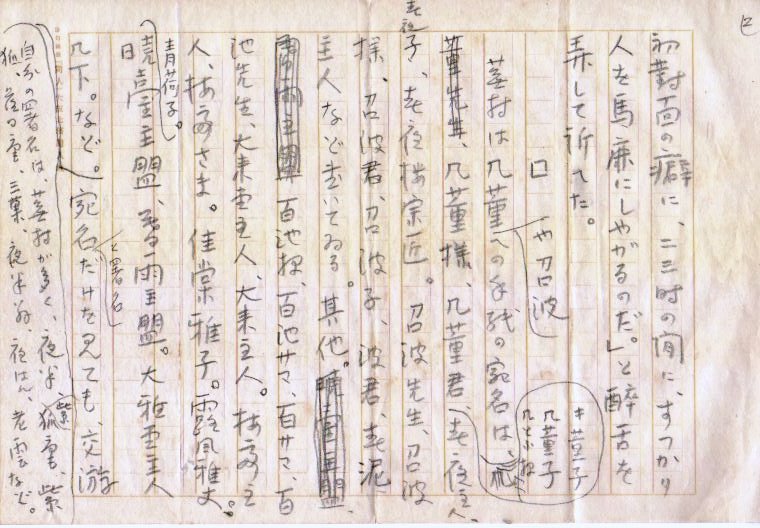 初対面の癖に、二三時の間に、すつかり
人を馬鹿にしやがるのだ。」と酔舌を
弄して訴へた。
□
や召波
蕪村は几董への手紙の宛名は、
才董子
几董子
董先生、几董様、几董君、春夜主人、
春夜子、春夜楼宗匠。召波先生、召波
様、召波君、召波子、波君、春泥
主人など書いてゐる。其他。
百池様、百池サマ、百サマ、百
池先生、大来堂主人、大来主人。梅亭主
人、梅亭さま。佳棠雅子。露風雅丈。
青荷子。
暁台主盟、主盟。大雅堂主人
几下。など。宛名だけを見ても、交游
と署名
自分の署名は、蕪村が多く、夜半、紫狐庵、紫
狐、落日庵、三菓、夜半翁、夜はん、老雲など。